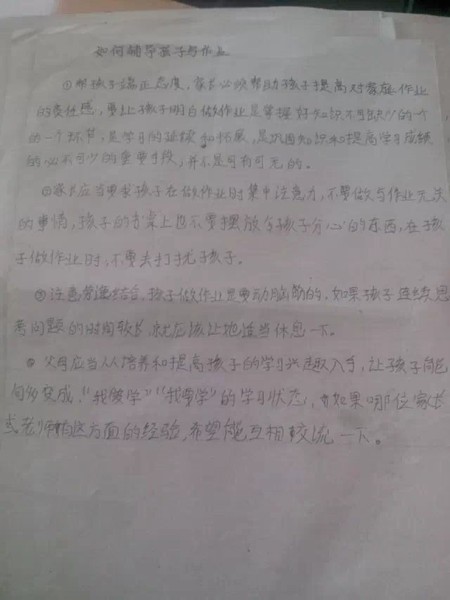 如何辅导孩子写作业
①帮孩子端正态度,家长必须帮助孩子提高对家庭作业
的责任感,要让孩子明白做作业是掌握好知识不可缺少的一个
的一个环节,是学习的延续和拓展,是巩固知识和提高学习成绩
的必不可少的重要手段,并不是可有可无的。
②家长应当要求孩子在做作业时集中注意力,不要做与作业无关
的事情,孩子的书桌上也不要摆放令孩子分心的东西,在孩
子做作业时,不要去打扰孩子。
③注意劳逸结合,孩子做作业是要动脑筋的,如果孩子连续思
考问题的时间较长,就应该让他适当休息一下。
④父母应当从培养和提高孩子的学习兴趣入手,让孩子能
句多变成,“我要学”“我要学”的学习状态,如果哪位家长
或老师有这方面的经验,希望能互相较流一下。